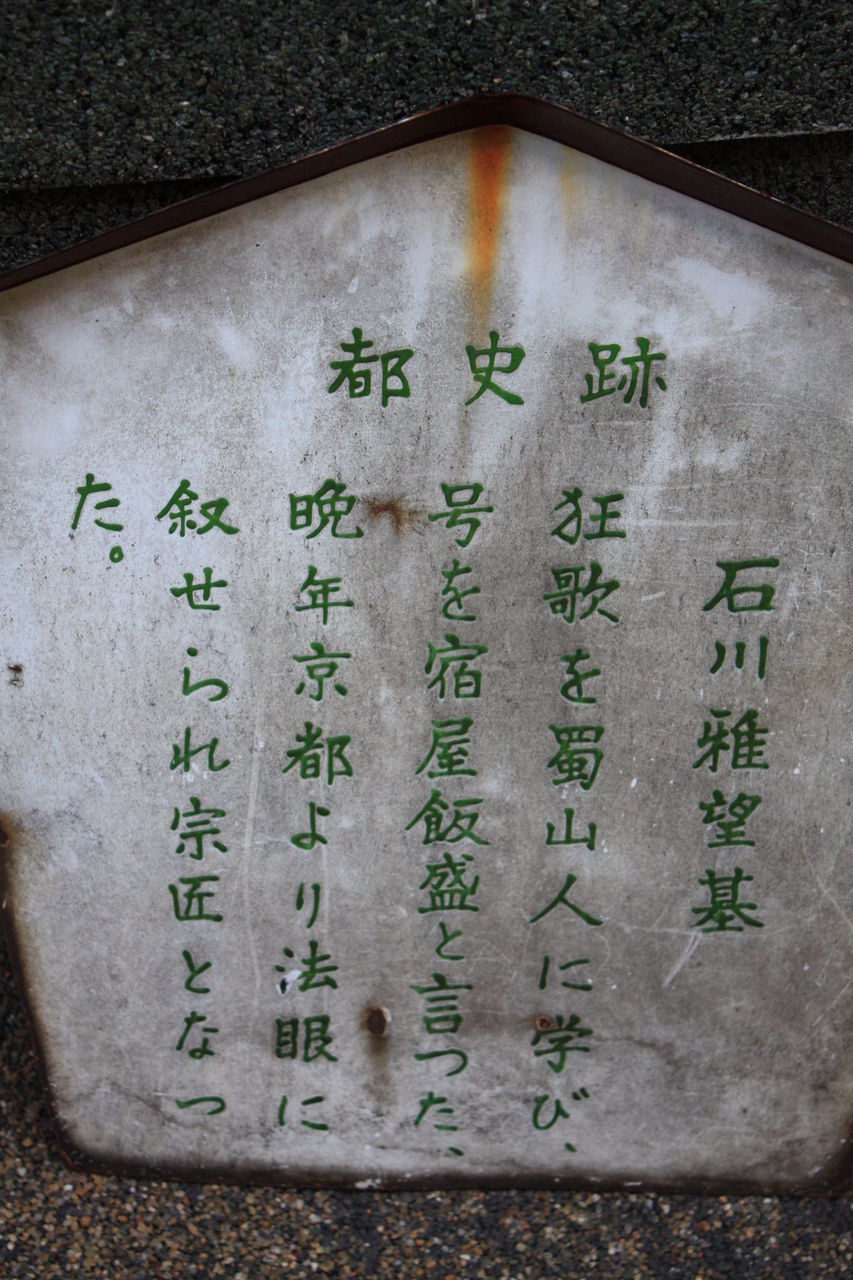 都史跡
石川雅望墓
狂歌を蜀山人に学び、
号を宿屋飯盛と言つた、
晩年京都より法眼に
叙せられ宗匠となつ
た。